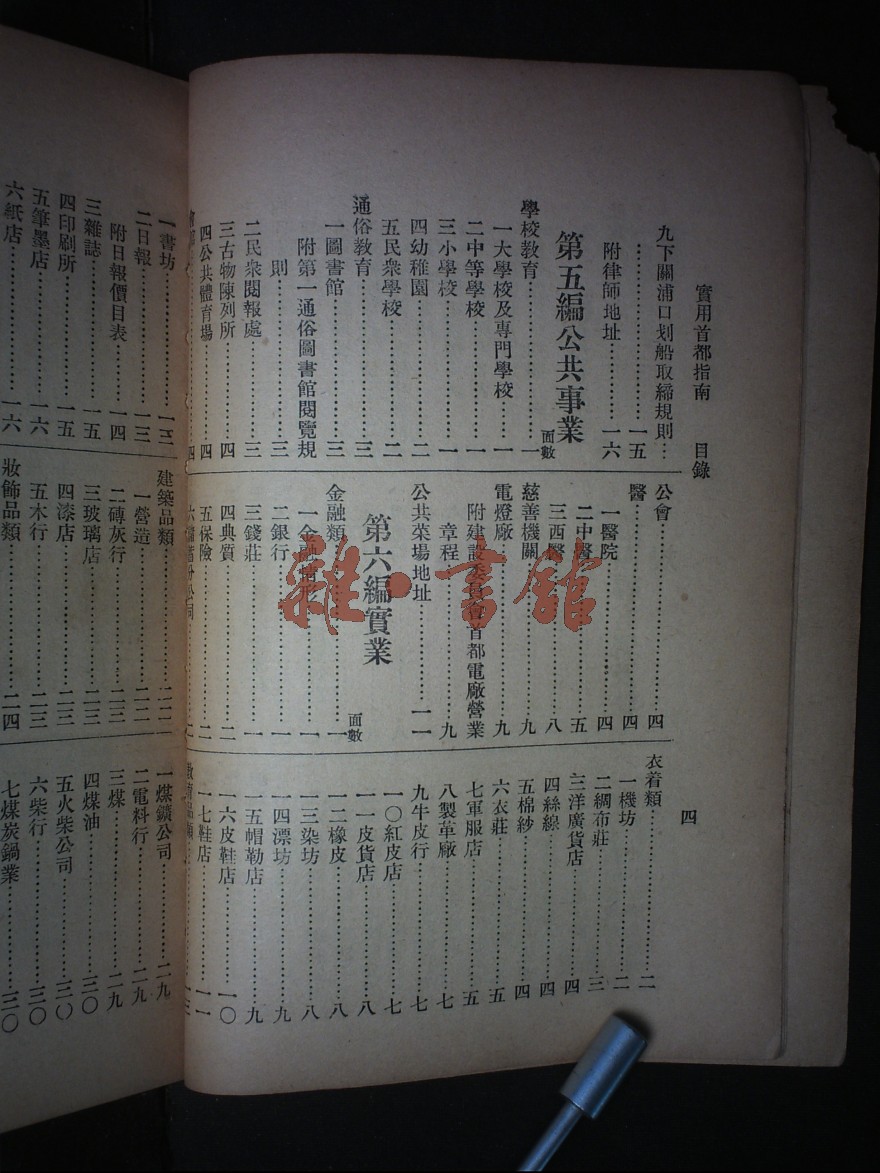 實用首都指南　目錄
四
九下關浦口划船取締規則…
……………一五
附律師地址……一六
第五編公共事業
面數
學校教育……一
一大學校及專門學校……一
二中等學校……一
三小學校……一
四幼稚園……二
五民衆學校……二
通俗教育……三
一圖書館……三
附第一通俗圖書館閱覽規
則……三
二民衆閱報處……三
三古物陳列所……四
四公共體育場……四
公會……四
醫……四
一醫院……四
二中醫……五
三西醫……八
慈善機關……九
電燈廠……九
附建設委員會首都電廠營業
章程……九
公共菜場地址……一一
第六編實業
面數
金融類……一
一金融情形……一
二銀行……一
三錢莊……一
四典質……二
五保險……二
衣着類……二
一機坊……二
二綢布莊……三
三洋廣貨店……四
四絲線……四
五棉紗……四
六衣莊……五
七軍服店……五
八製革廠……七
九牛皮行……七
一〇紅皮店……七
一一皮貨店……八
一二橡皮……八
一三染坊……八
一四漂坊……九
一五帽勒店……九
一六皮鞋店……一〇
一七鞋店……一一
一書坊……一三
二日報……一三
附日報價目表……一四
三雜誌……一五
四印刷所……一五
五筆墨店……一六
六紙店……一六
建築品類……二二
一營造……二二
二磚灰行……二三
三玻璃店……二三
四漆店……二三
五木行……二三
妝飾品類……二四
一煤鑛公司……二九
二電料行……二九
三煤……二九
四煤油……三〇
五火柴公司……三〇
六柴行……三〇
七煤炭鍋業……三〇
雜·書館